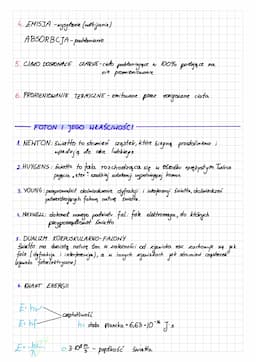 4. EMISJA - wysyłanie (nadawanie)
ABSORBCJA - pochłanianie
5. CIAŁO DOSKONALE CZARNE - ciało pochłaniające w 100% padające na nie promieniowanie
6. PROMIENIOWANIE TERMICZNE - emitowane przez rozgrzane ciała
FOTON I JEGO WŁAŚCIWOŚCI
1. NEWTON: światło to strumień cząstek, które biegną prostoliniowo i wpadają do oka ludzkiego
2. HUYGENS: światło to fala rozchodząca się w ośrodku sprężystym
3. YOUNG: przeprowadził doświadczenie dyfrakcji i interferencji światła, doświadczeń potwierdzających falową naturę światła.
4. MAXWELL: dokonał nowego podziału fal: fale elektromagn., do których przyporządkował światło
5. DUALIZM KORPUSKULARNO-FALOWY
światło ma dwoistą naturę tzn. w zależności od zjawiska raz zachowuje się jak fala (dyfrakcja i interferencja), a w innych zjawiskach jak strumień cząstek (zjawisko fotoelektryczne)
6. KWANT ENERGII
E = hν
E = hf
częstotliwość
h: stała Plancka = 6,63 · 10⁻³⁴ J · s
E = hc/λ
3·10⁸ m/s - prędkość światła